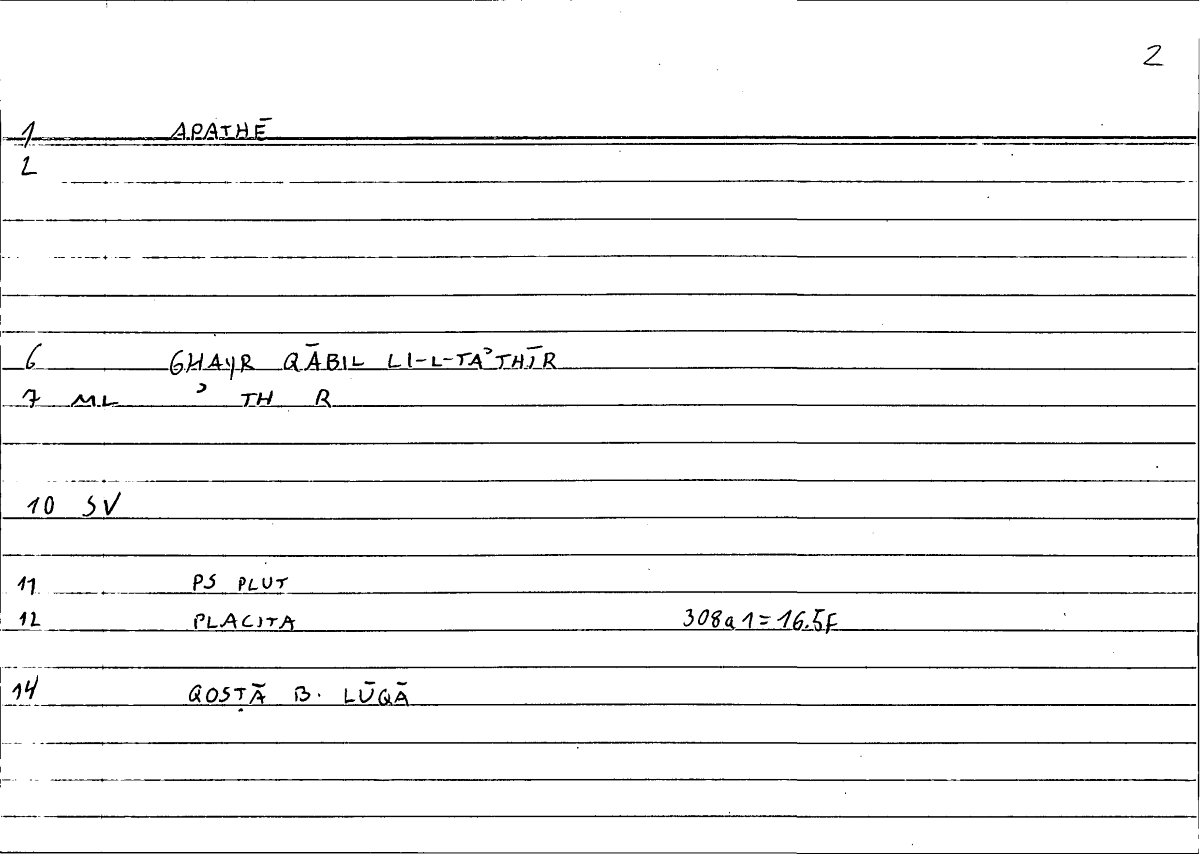 2
1 APATHĒ
2
6 GHAYR QĀBIL LI-L-TAʾTHĪR
7 ML ʾ TH R
10 SV
11 PS PLUT
12 PLACITA 308a1=16.5F
14 QOSṬĀ B. LŪQĀ